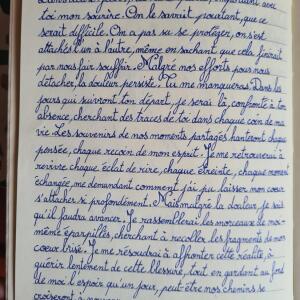 toi mon sourire. On le savait pourtant, que ce
serait difficile. On a pas su se protéger, on s'est
attachés l'un à l'autre, même en sachant que cela finirait
par nous faire souffrir. Malgré nos efforts pour nous
détacher, la douleur persiste. Tu me manqueras. Dans les
jours qui suivront ton départ, je serai là, confronté à ton
absence, cherchant des traces de toi dans chaque coin de ma
vie. Les souvenirs de nos moments partagés hanteront chaque
pensée, chaque recoin de mon esprit. Je me retrouverai à
revivre chaque éclat de rire, chaque étreinte, chaque moment
échangé, me demandant comment j'ai pu laisser mon coeur
s'attacher si profondément. Mais malgré la douleur, je sais
qu'il faudra avancer. Je rassemblerai les morceaux de moi-
même éparpillés, cherchant à recoller les fragments de mon
coeur brisé. Je me résoudrai à affronter cette réalité, à
guérir lentement de cette blessure, tout en gardant au fond
de moi l'espoir qu'un jour, peut-être nos chemins se
croiseront à nouveau